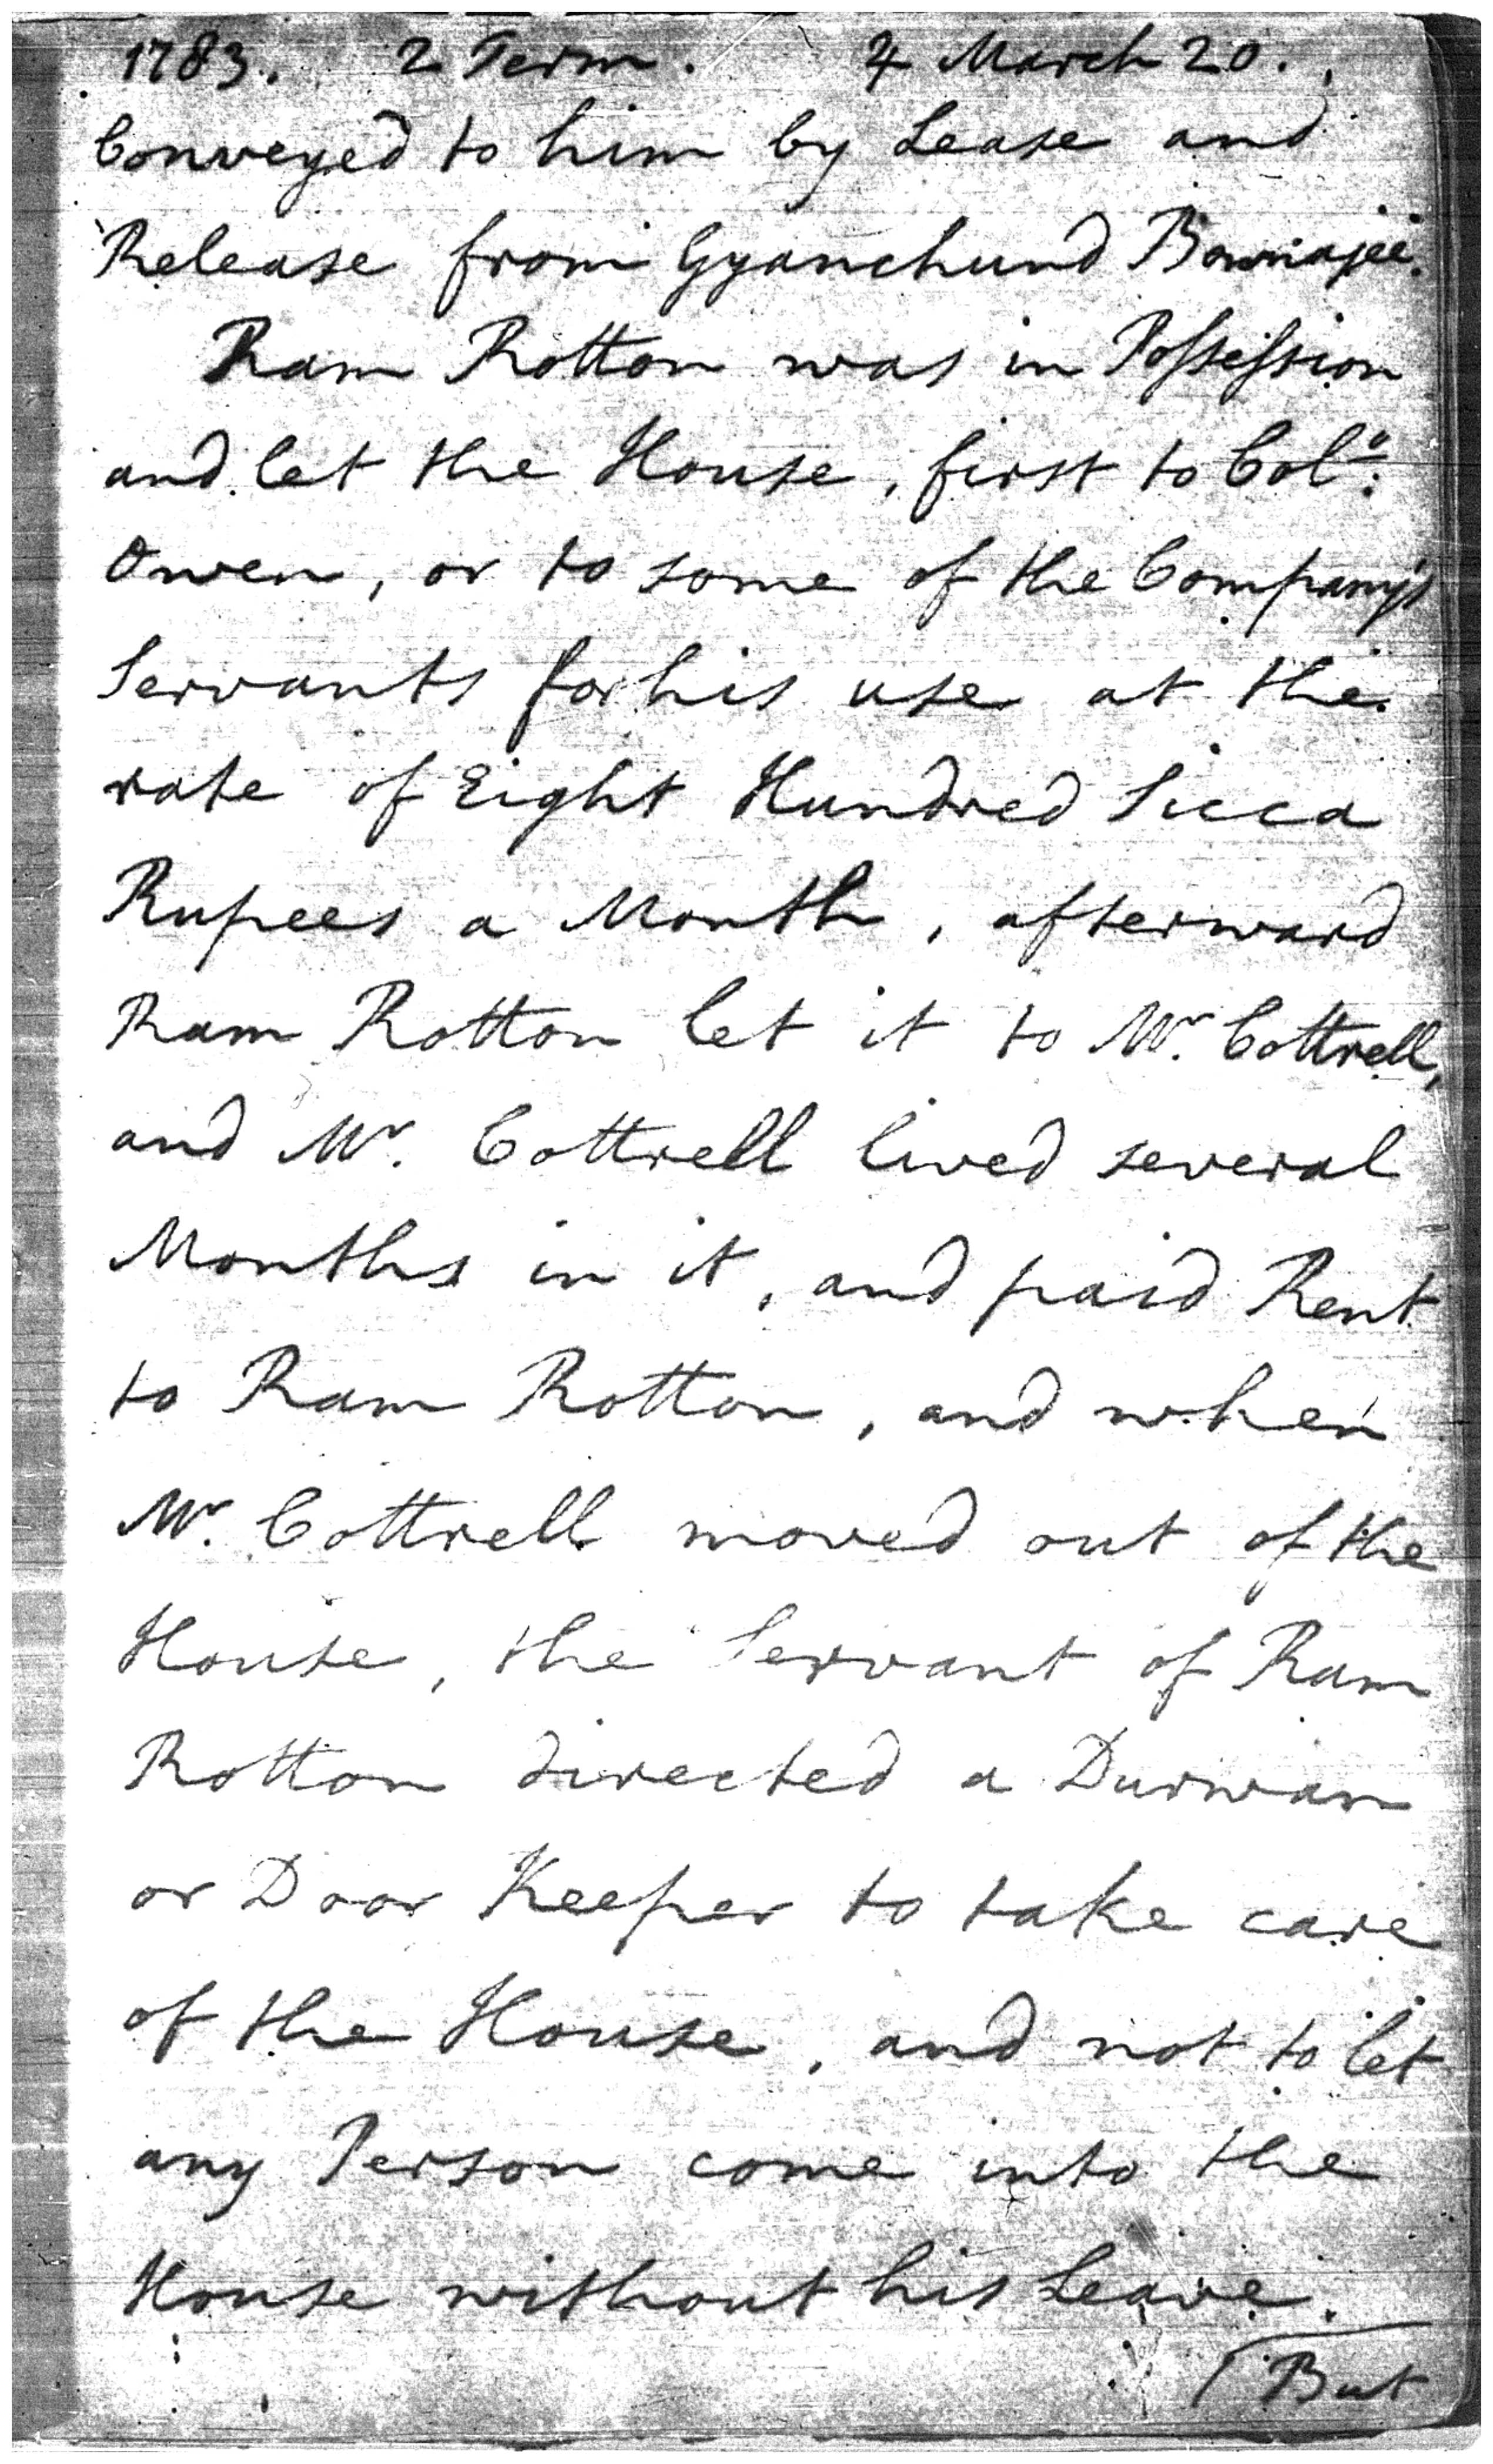 1783. 2 Term. ♃ March 20.
Conveyed to him by Lease and
Release from Gyanchund
Ram Rotton was in Possession
and let the House, first to Col.º
Owen, or to some of the Company's
Servants for his use at the
rate of Eight Hundred Sicca
Rupees a Month, afterward
Ram Rotton let it to Mr. Cottrell,
and Mr. Cottrell lived several
Months in it, and paid Rent
to Ram Rotton, and when
Mr. Cottrell moved out of the
House, the Servant of Ram
Rotton directed a Durwan
or Door Keeper to take care
of the House, and not to let
any Person come into the
House without his Leave.
But